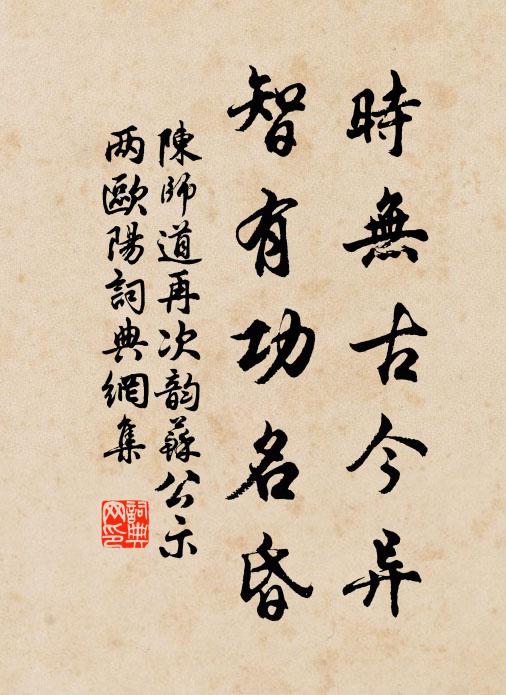 時無古今异
智有功名昏
陳師道再次韵蘇公示
两歐陽詞典網集
詞典
网印